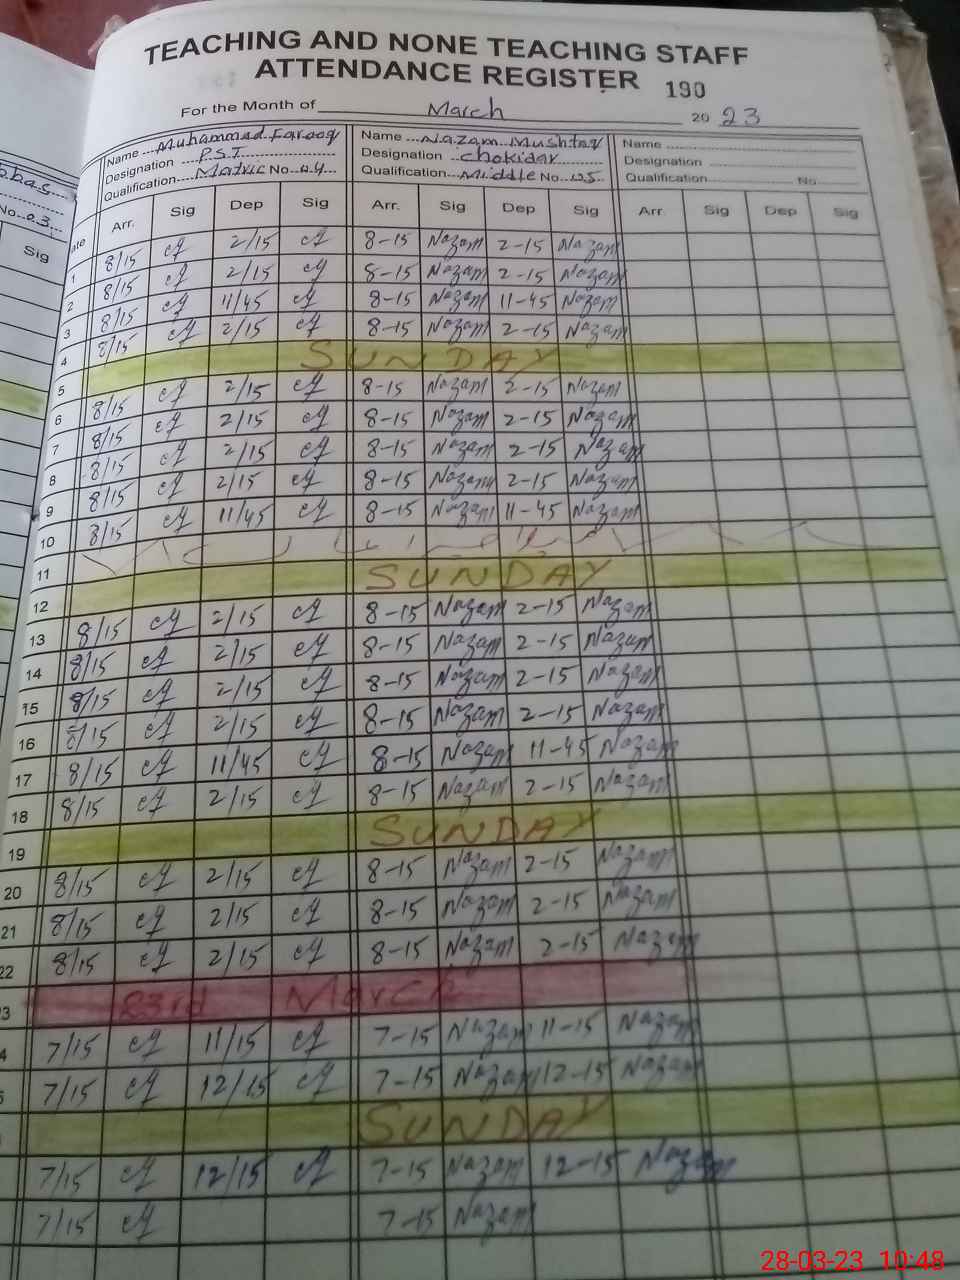 TEACHING AND NONE TEACHING STAFF
ATTENDANCE REGISTER 190
For the Month of March 20 23
Name Muhammad Farooq Name Nazam Mushtaq Name
Designation P.S.T Designation Chokidar Designation
Qualification Matric No 04 Qualification Middle No 05 Qualification No
No 03
Sig Arr. Sig Dep Sig Arr. Sig Dep Sig Arr. Sig Dep Sig
1 8/15 2/15 8-15 Nazam 2-15 Nazam
2 8/15 2/15 8-15 Nazam 2-15 Nazam
3 8/15 11/45 8-15 Nazam 11-45 Nazam
4 8/15 2/15 8-15 Nazam 2-15 Nazam
5 SUNDAY
6 8/15 2/15 8-15 Nazam 2-15 Nazam
7 8/15 2/15 8-15 Nazam 2-15 Nazam
8 8/15 2/15 8-15 Nazam 2-15 Nazam
9 8/15 2/15 8-15 Nazam 2-15 Nazam
10 8/15 11/45 8-15 Nazam 11-45 Nazam
11
12 SUNDAY
13 8/15 2/15 8-15 Nazam 2-15 Nazam
14 8/15 2/15 8-15 Nazam 2-15 Nazam
15 8/15 2/15 8-15 Nazam 2-15 Nazam
16 8/15 2/15 8-15 Nazam 2-15 Nazam
17 8/15 11/45 8-15 Nazam 11-45 Nazam
18 8/15 2/15 8-15 Nazam 2-15 Nazam
19 SUNDAY
20 8/15 2/15 8-15 Nazam 2-15 Nazam
21 8/15 2/15 8-15 Nazam 2-15 Nazam
22 8/15 2/15 8-15 Nazam 2-15 Nazam
3 23rd March
4 7/15 11/15 7-15 Nazam 11-15 Nazam
5 7/15 12/15 7-15 Nazam 12-15 Nazam
SUNDAY
7/15 12/15 7-15 Nazam 12-15 Nazam
7/15 7-15 Nazam
28-03-23 10:48